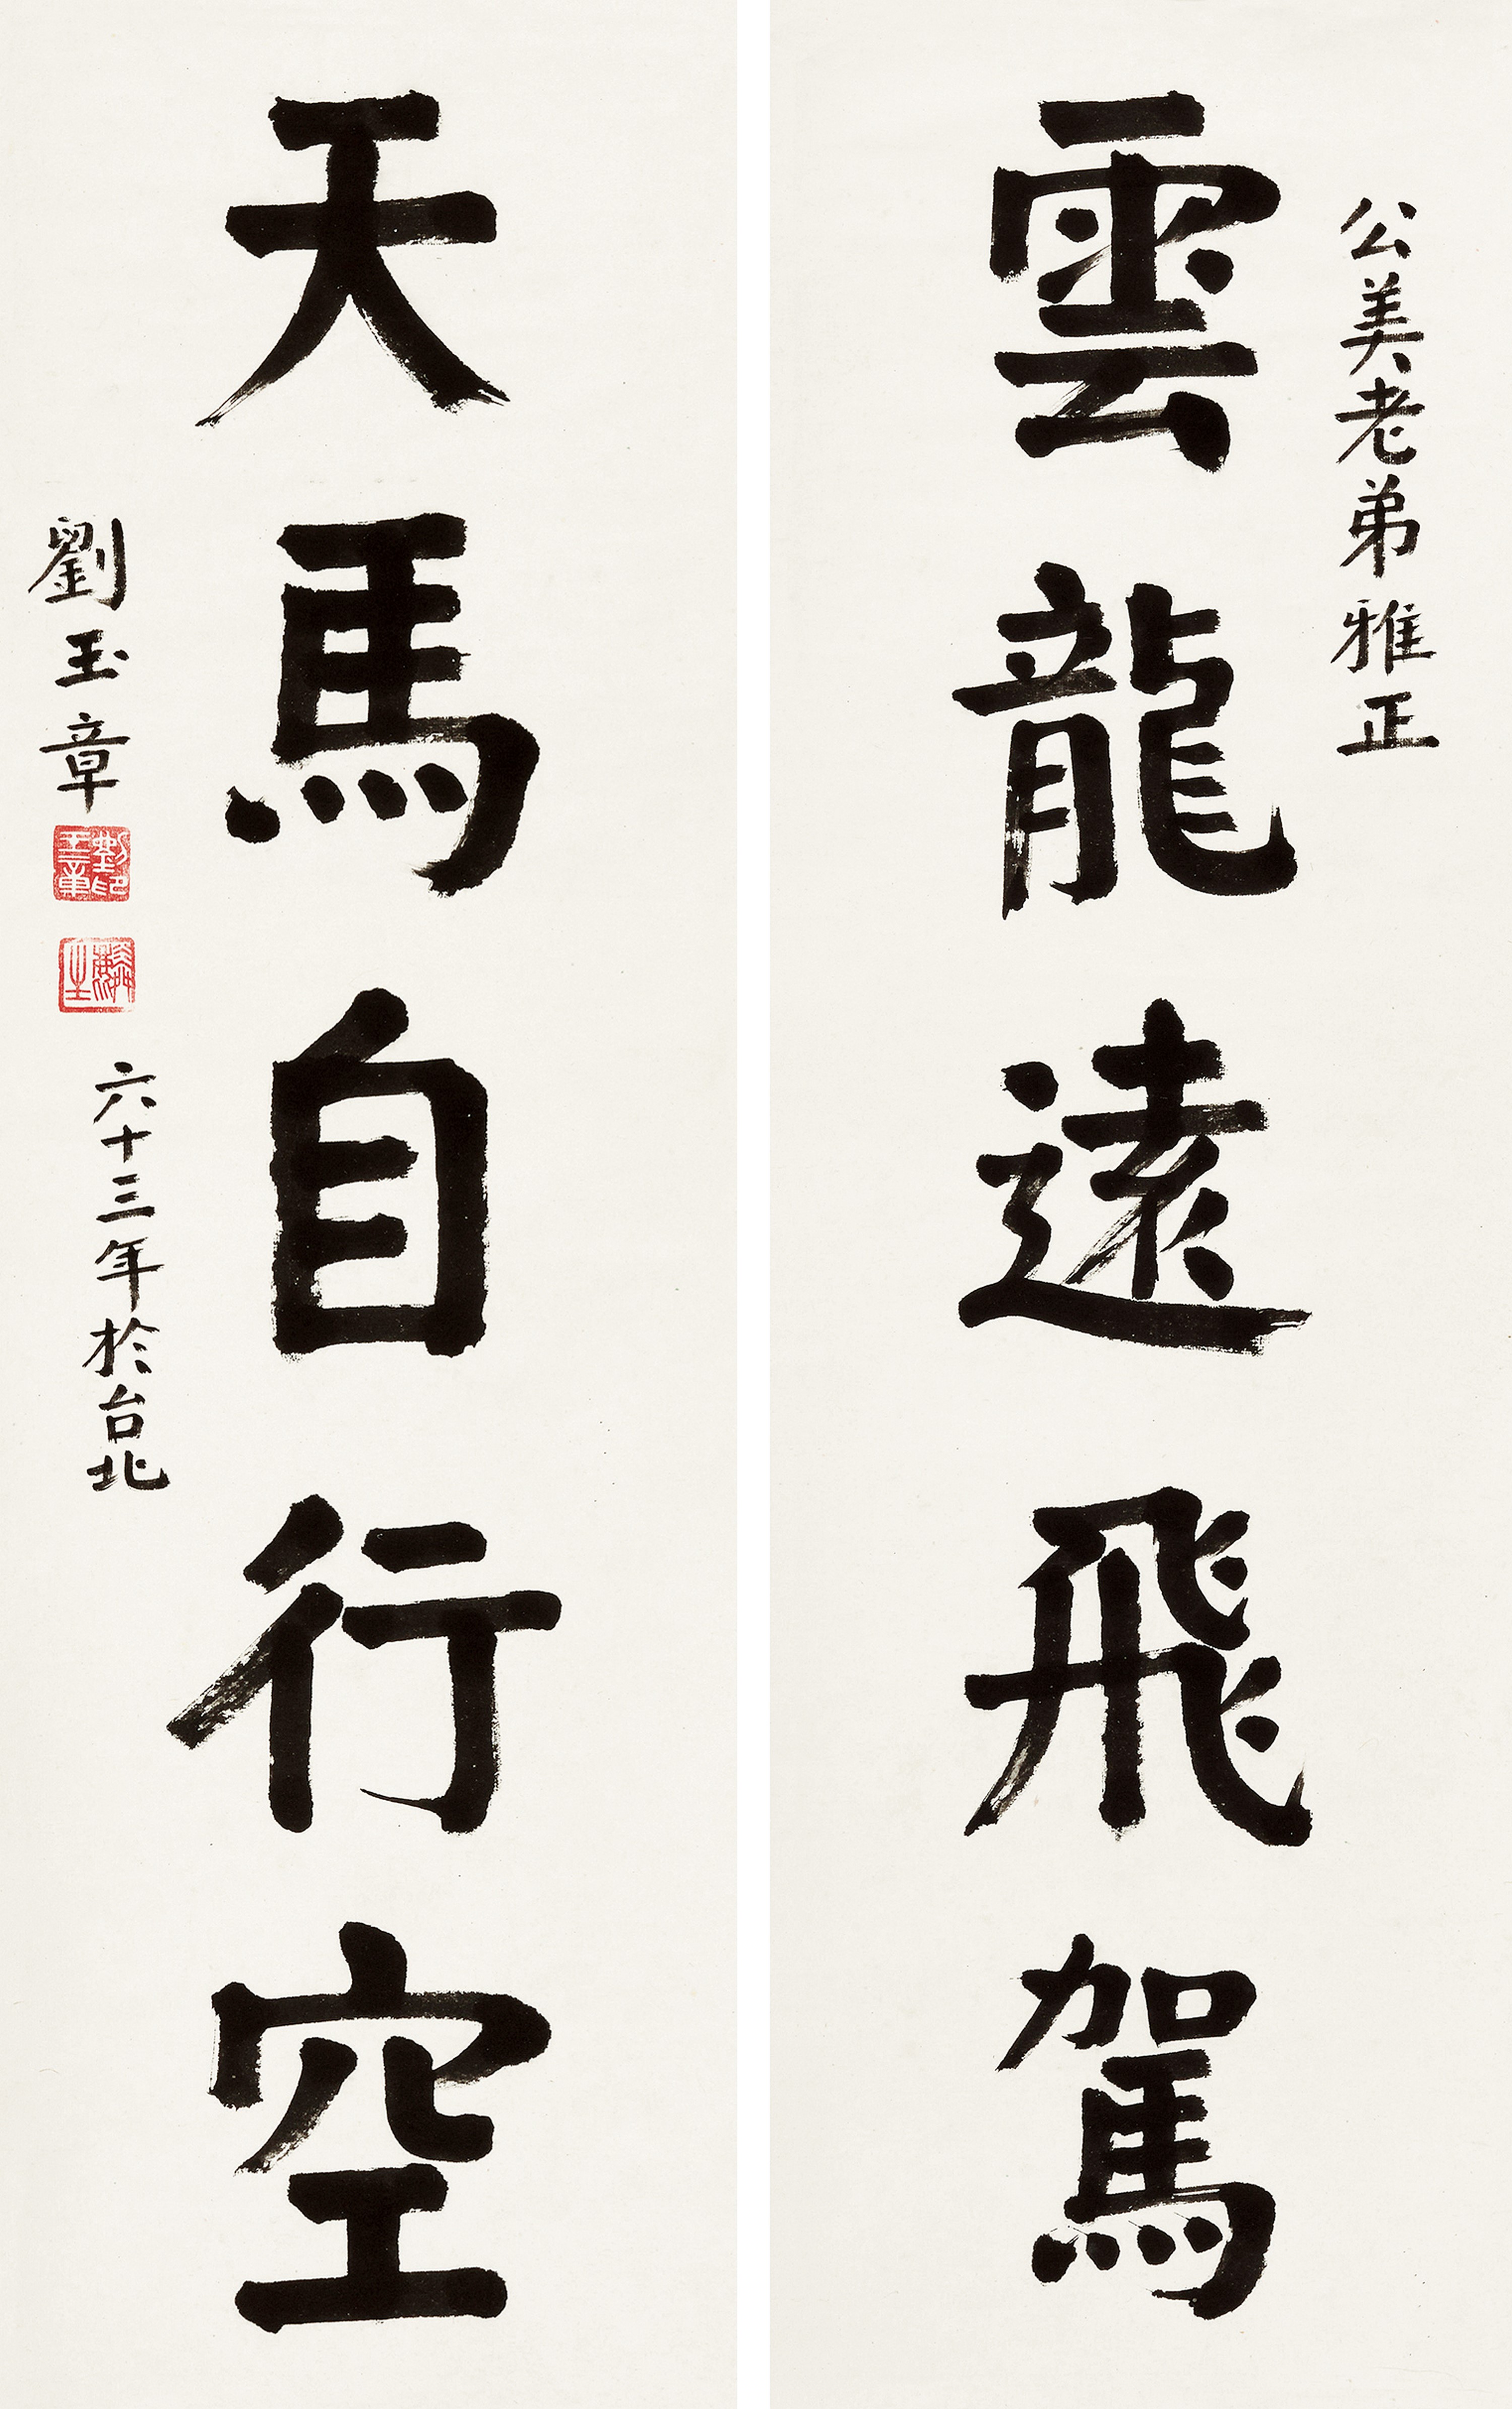 公美老弟雅正
雲龍遠飛駕
天馬自行空
劉玉章
劉印玉章
麟生
六十三年於台北